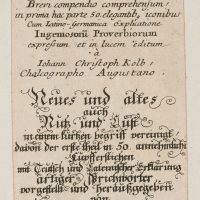 Brevi compendio comprehensum,
in prima hac parte 50. elegantib, iconibus
Cum Latino-Germanica Explicatione
Ingeniosorū Proverbiorum
expressum et in lucem editum
à
Iohann Christoph Kolb,
Chalcographo Augustano.
Neues und altes
auch
Nutz und Lust
in einem kurtzen begriff vereiniget
davon der erste theil in 50. annehmlichē
Kupfferstichen
mit Teutsch und Lateinischer Erklärung
artiger Sprichwörter
vorgestellt und heraußgegeben
von